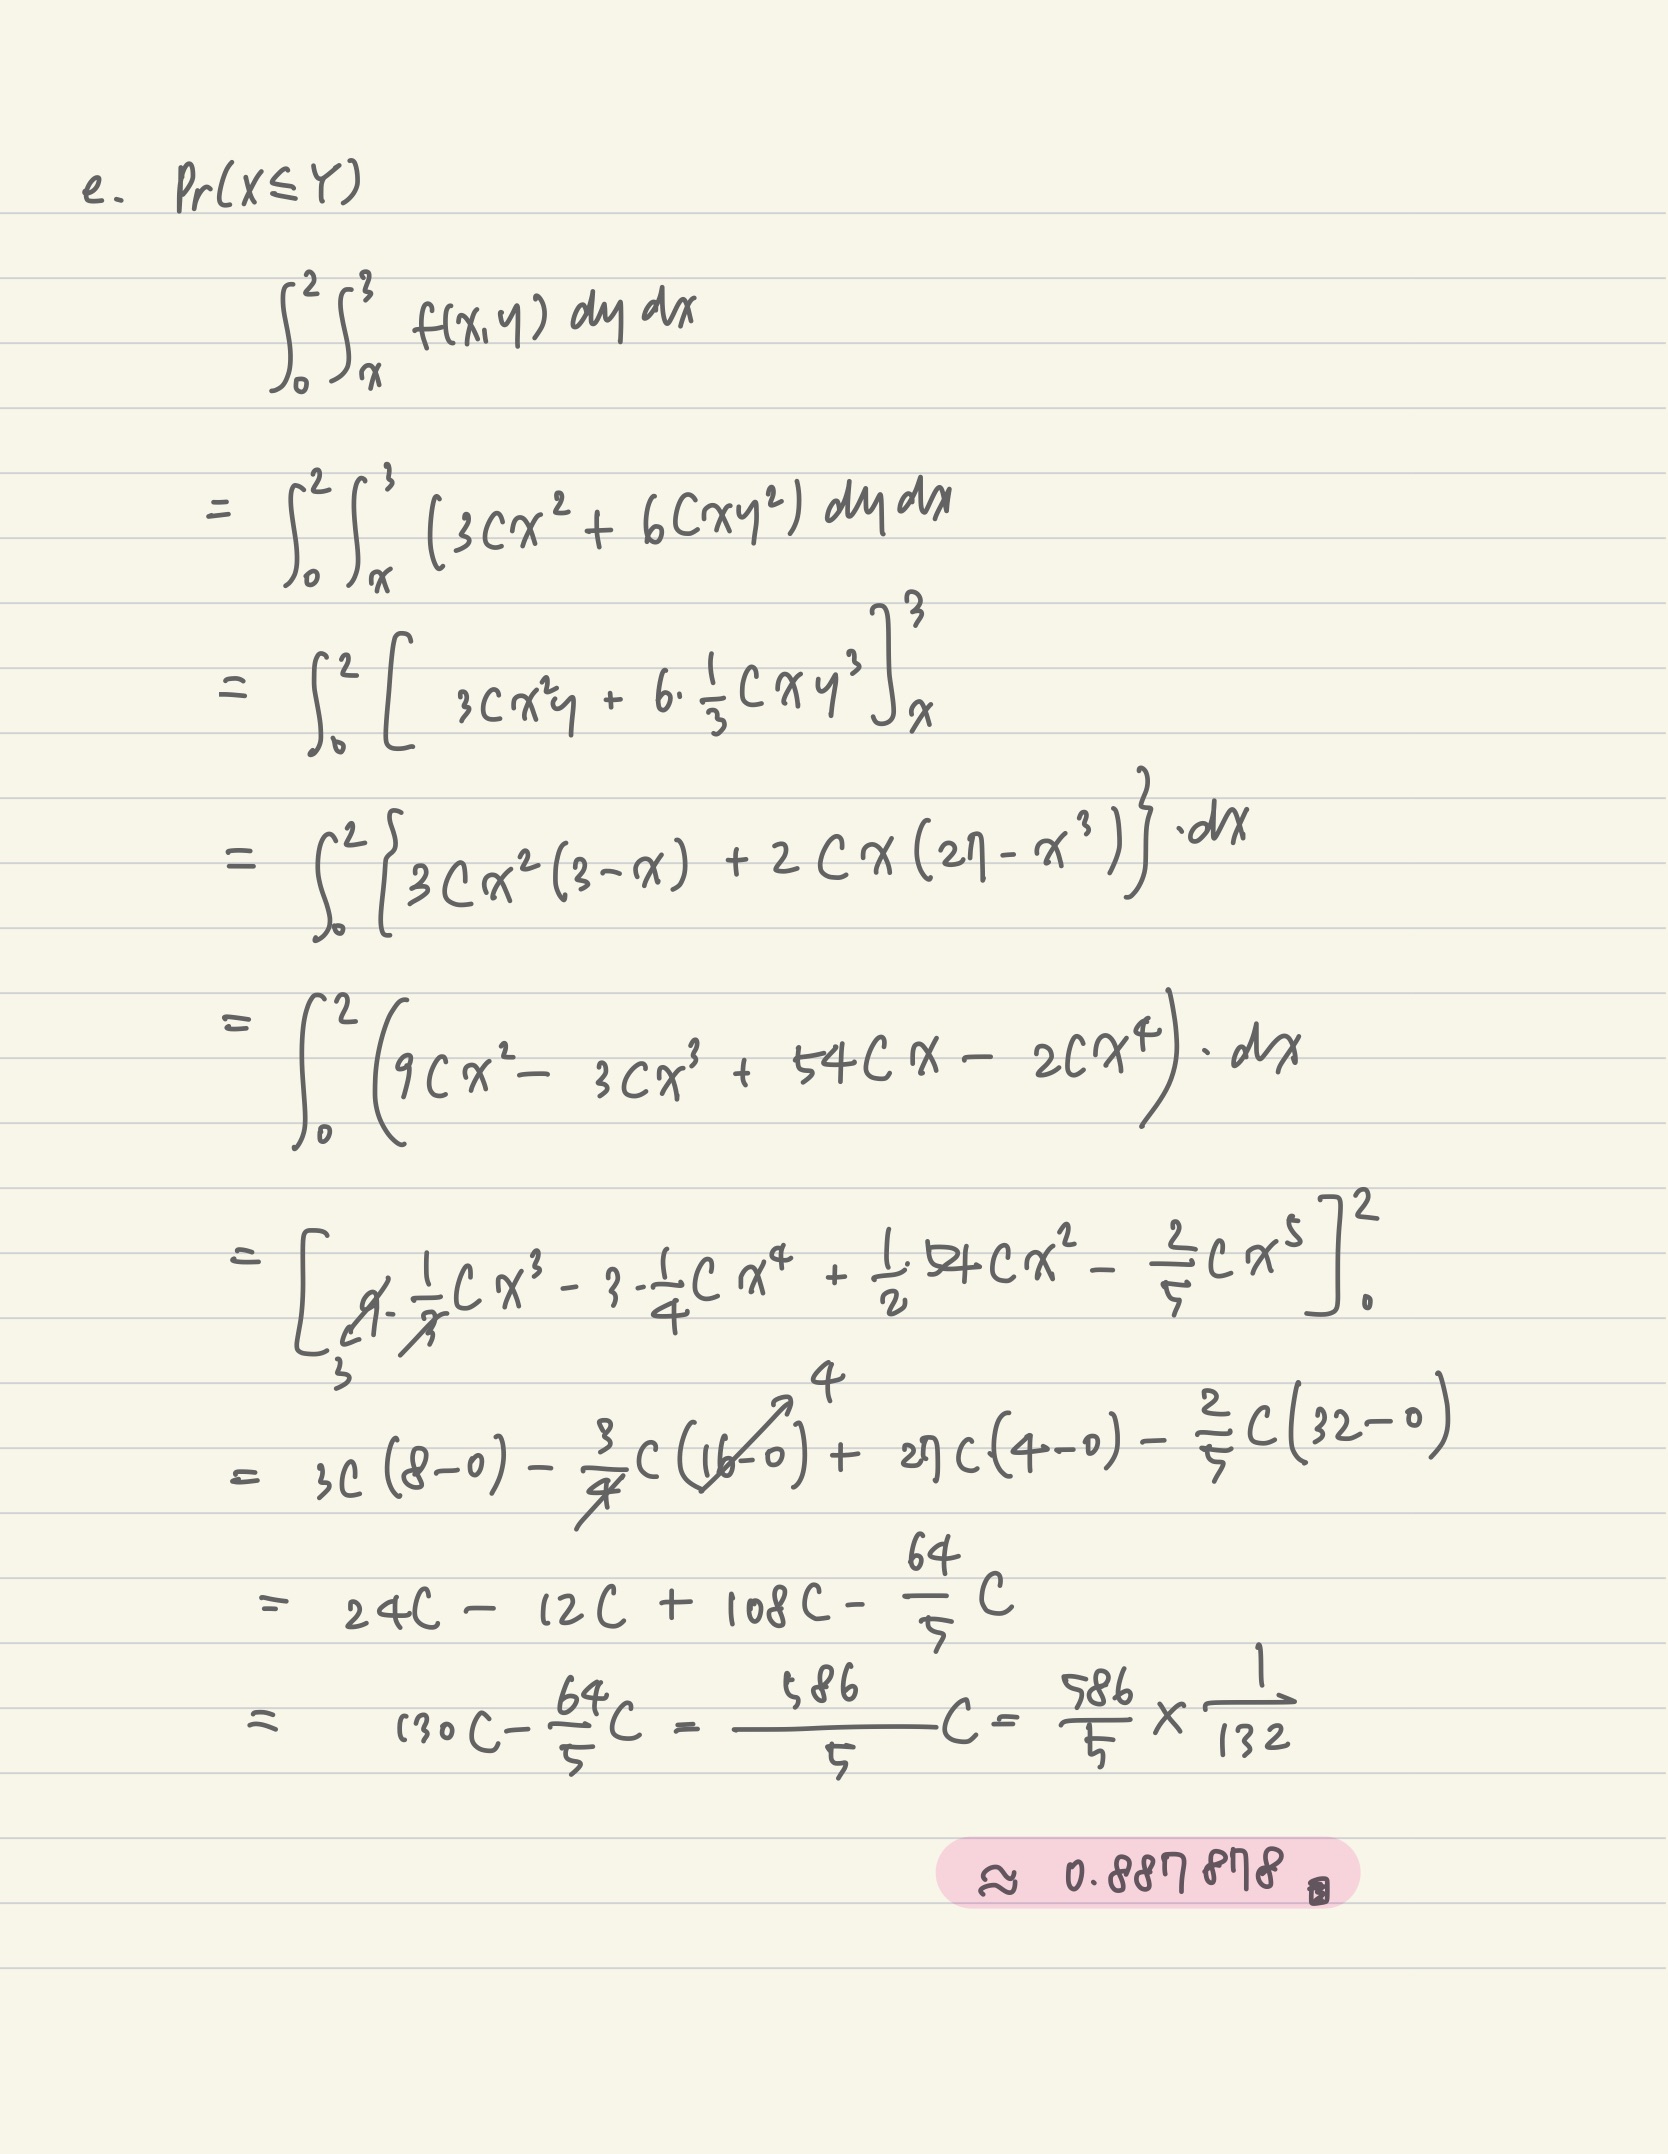 e. Pr(X ≤ Y)
∫₀² ∫ₓ³ f(x,y) dy dx
= ∫₀² ∫ₓ³ (3Cx² + 6Cxy²) dy dx
= ∫₀² [ 3Cx²y + 6·1/3 Cxy³ ]ₓ³
= ∫₀² {3Cx²(3-x) + 2Cx(27-x³)}·dx
= ∫₀² (9Cx² - 3Cx³ + 54Cx - 2Cx⁴)·dx
= [ 9·1/3 Cx³ - 3·1/4 Cx⁴ + 1/2·54Cx² - 2/5 Cx⁵ ]₀²
3
4
= 3C(8-0) - 3/4 C(16-0) + 27C(4-0) - 2/5 C(32-0)
= 24C - 12C + 108C - 64/5 C
= 130C - 64/5 C = 586/5 C = 586/5 × 1/132
≈ 0.887878